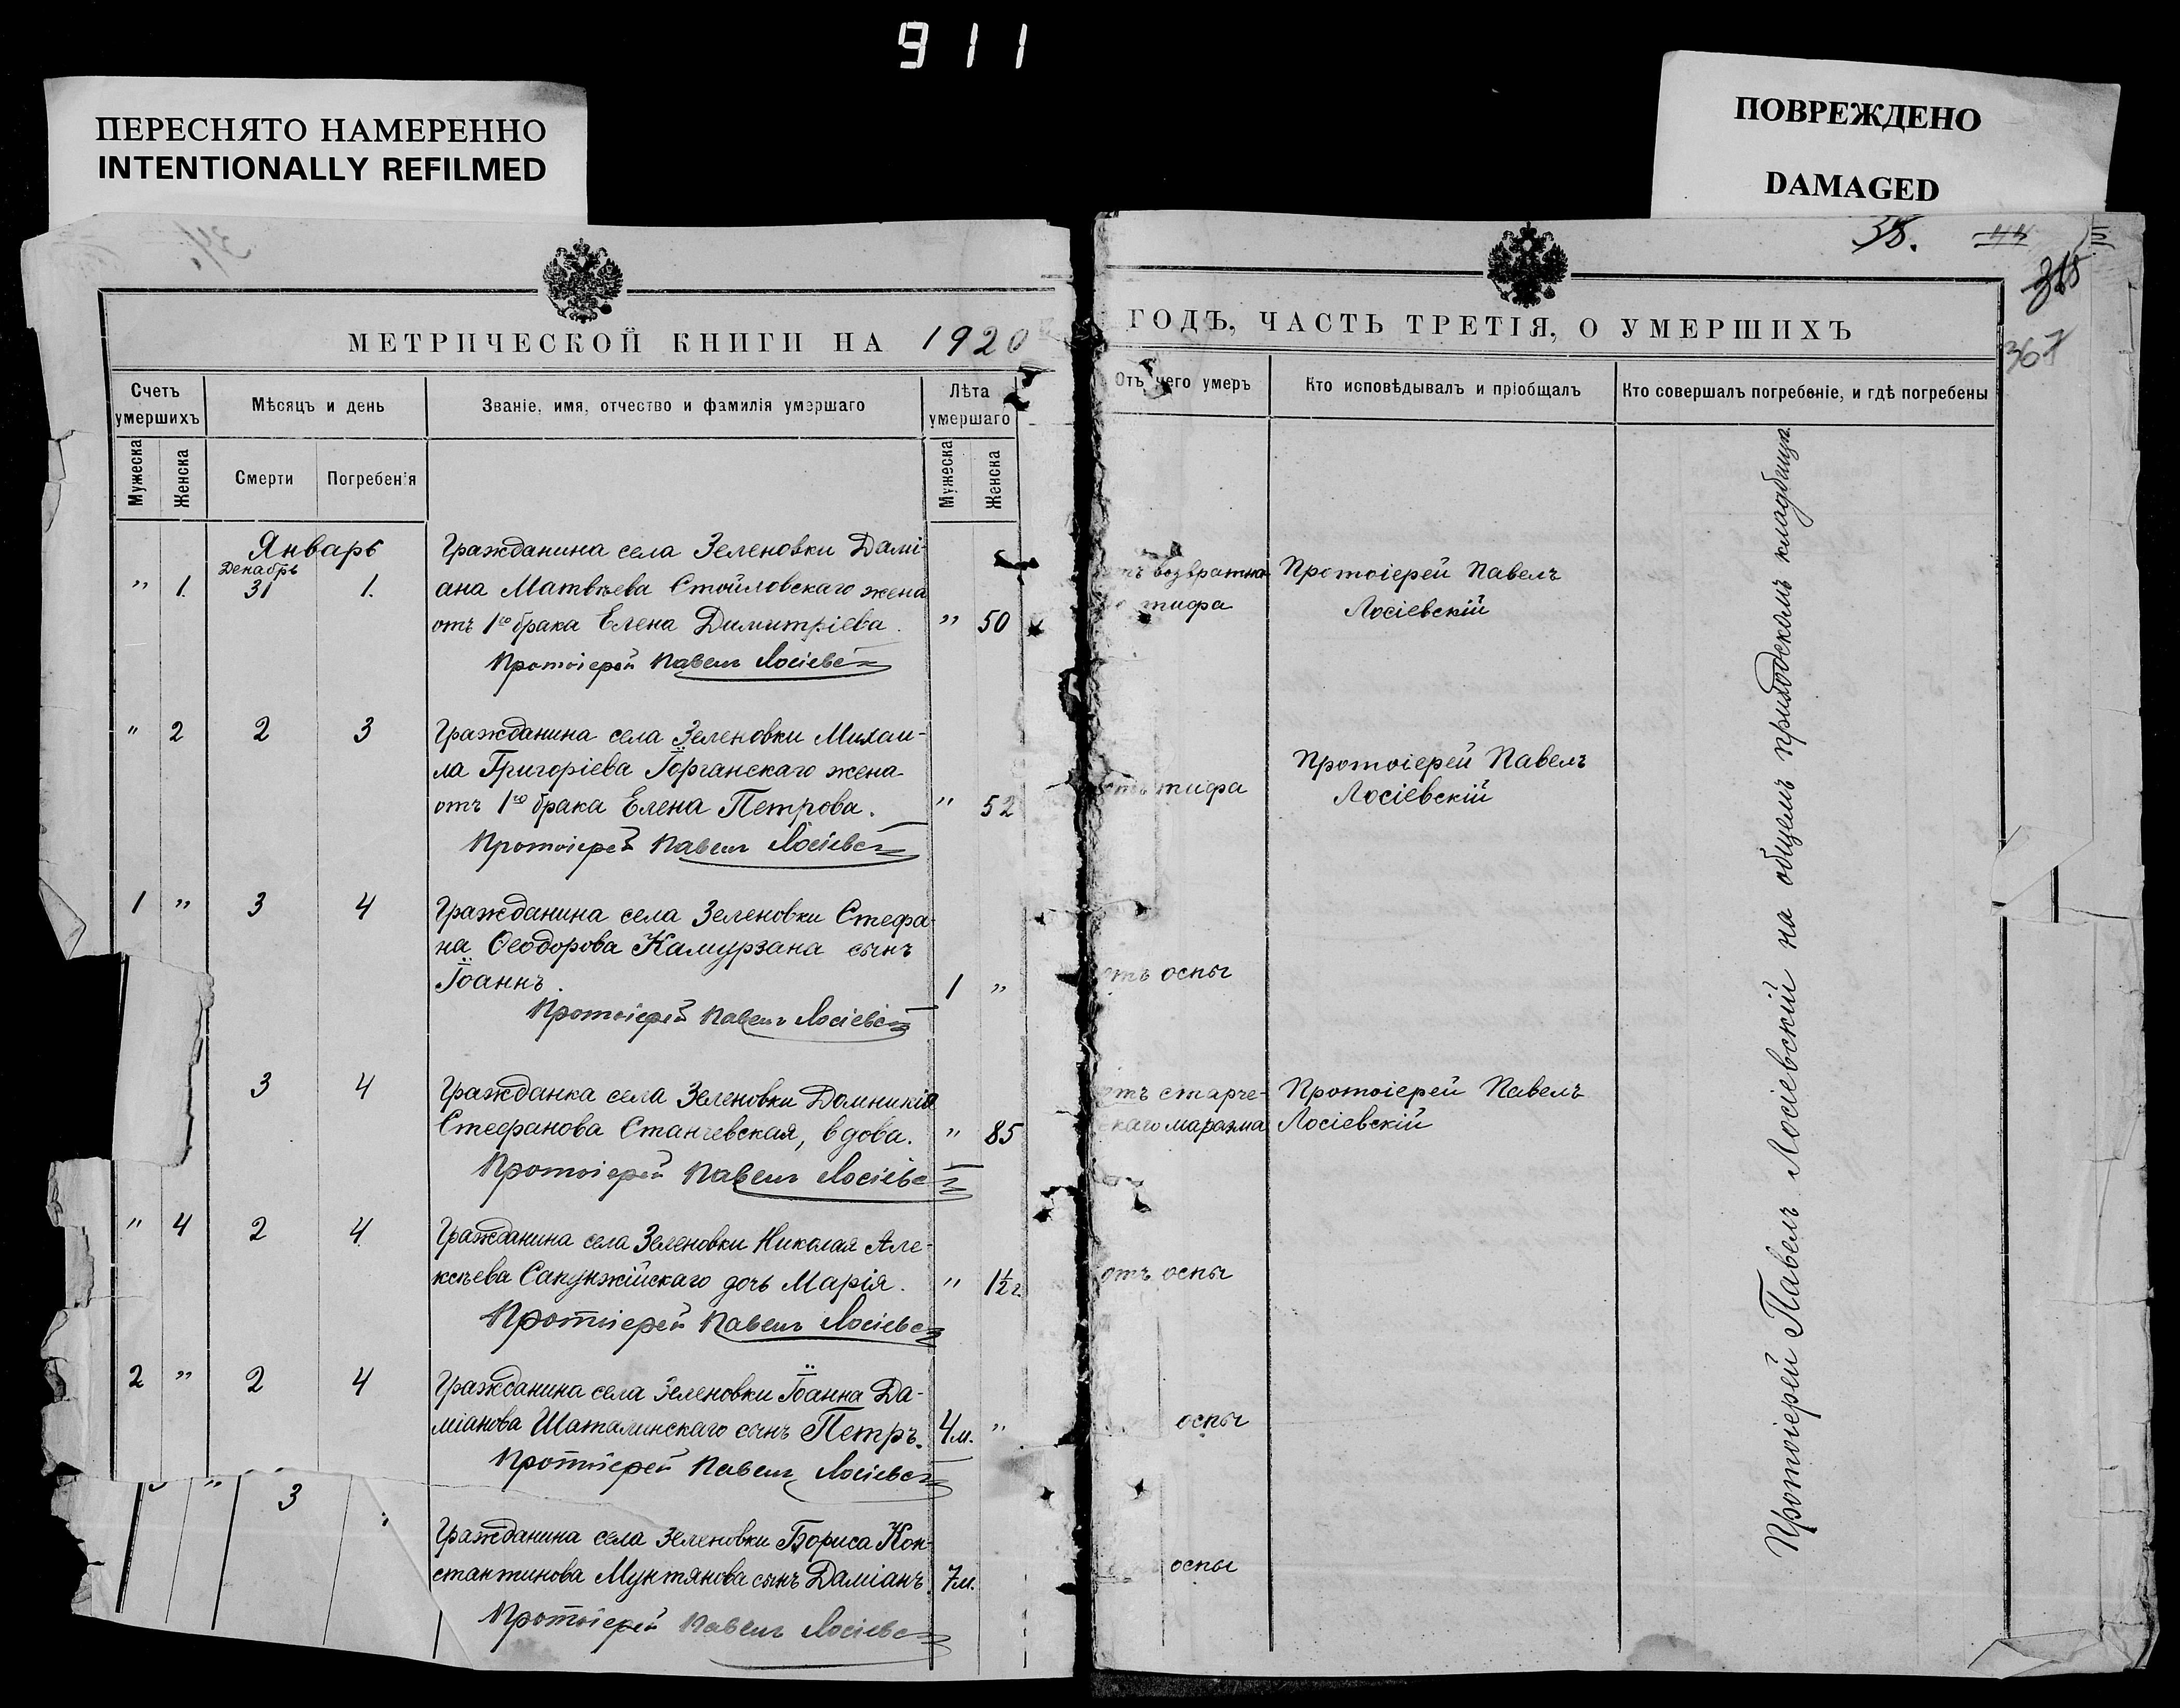 911
ПЕРЕСНЯТО НАМЕРЕННО
INTENTIONALLY REFILMED
ПОВРЕЖДЕНО
DAMAGED
34.
38.
367
МЕТРИЧЕСКОЙ КНИГИ НА 1920
ГОДѢ, ЧАСТЬ ТРЕТІЯ, О УМЕРШИХЪ
Счетъ умершихъ
Мѣсяцъ и день
Званіе, имя, отчество и фамилія умэршаго
Лѣта умершаго
Отъ чего умеръ
Кто исповѣдывалъ и пріобщалъ
Кто совершалъ погребеніе, и гдѣ погребены
Мужеска Женска Смерти Погребенія Мужеска Женска
Январь
Декабрь
" 1. 31 1.
Гражданина села Зеленовки Дамі-
ана Матвѣева Стойловскаго жена
отъ 1го брака Елена Димитріева.
" 50
Протоіерей Павелъ Лосіевскій
отъ возвратна-
го тифа
Протоіерей Павелъ
Лосіевскій
" 2 2 3
Гражданина села Зеленовки Михаи-
ла Григоріева Горганскаго жена
отъ 1го брака Елена Петрова.
" 52
Протоіерей Павелъ Лосіевскій
отъ тифа
Протоіерей Павелъ
Лосіевскій
1 " 3 4
Гражданина села Зеленовки Стефа-
на Ѳеодорова Камурзана сынъ
Іоаннъ.
1 "
Протоіерей Павелъ Лосіевскій
отъ оспы
3 4
Гражданка села Зеленовки Домникія
Стефанова Станчевская, вдова.
" 85
Протоіерей Павелъ Лосіевскій
отъ старче-
скаго маразма
Протоіерей Павелъ
Лосіевскій
" 4 2 4
Гражданина села Зеленовки Николая Але-
ксѣева Сакунжійскаго дочь Марія.
" 1½ г.
Протоіерей Павелъ Лосіевскій
отъ оспы
2 " 2 4
Гражданина села Зеленовки Іоанна Да-
міанова Шаталинскаго сынъ Петръ.
4 м. "
Протоіерей Павелъ Лосіевскій
оспы
" 3
Гражданина села Зеленовки Бориса Кон-
стантинова Мунтянова сынъ Даміанъ.
7 м.
Протоіерей Павелъ Лосіевскій
оспы
Протоіерей Павелъ Лосіевскій на общемъ приходскомъ кладбищѣ.